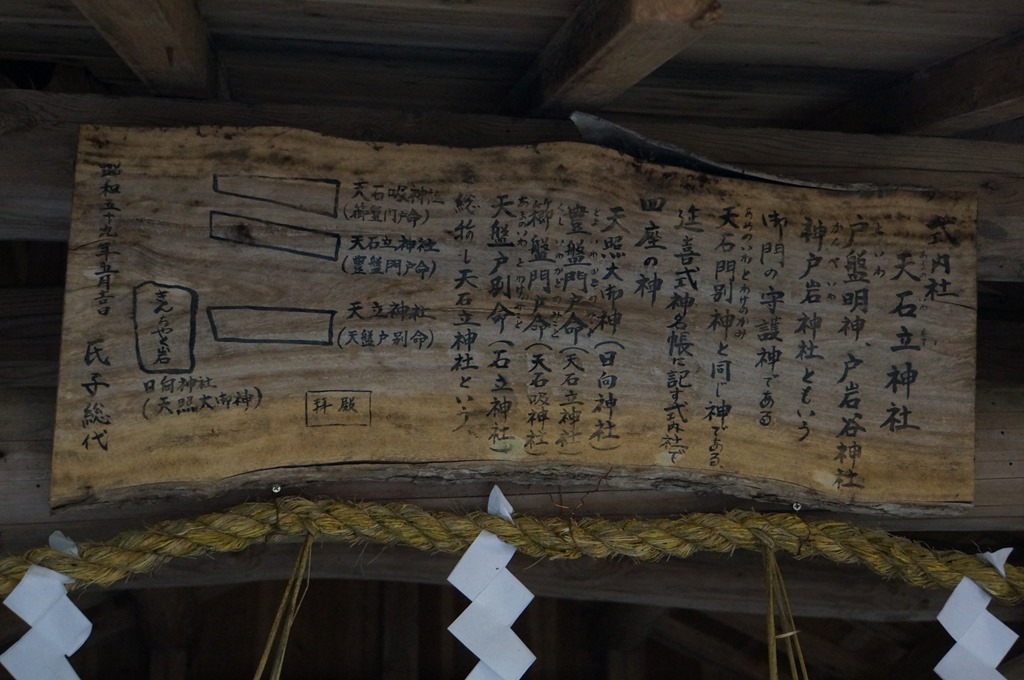 式内社
天石立神社
戸盤明神、戸岩谷神社
神戸岩神社ともいう
御門の守護神である
天石門別神と同じ神である
延喜式神名帳に記す式内社で
四座の神
天照大御神(日向神社)
豊盤門戸命(天石立神社)
櫛盤門戸命(天石吸神社)
天盤戸別命(石立神社)
総称し天石立神社という
天石吸神社
天石立神社
(豊盤門戸命)
天立神社
(天盤戸別命)
拝殿
きんちゃく岩
日向神社
(天照大御神)
昭和五十九年五月吉日
氏子総代